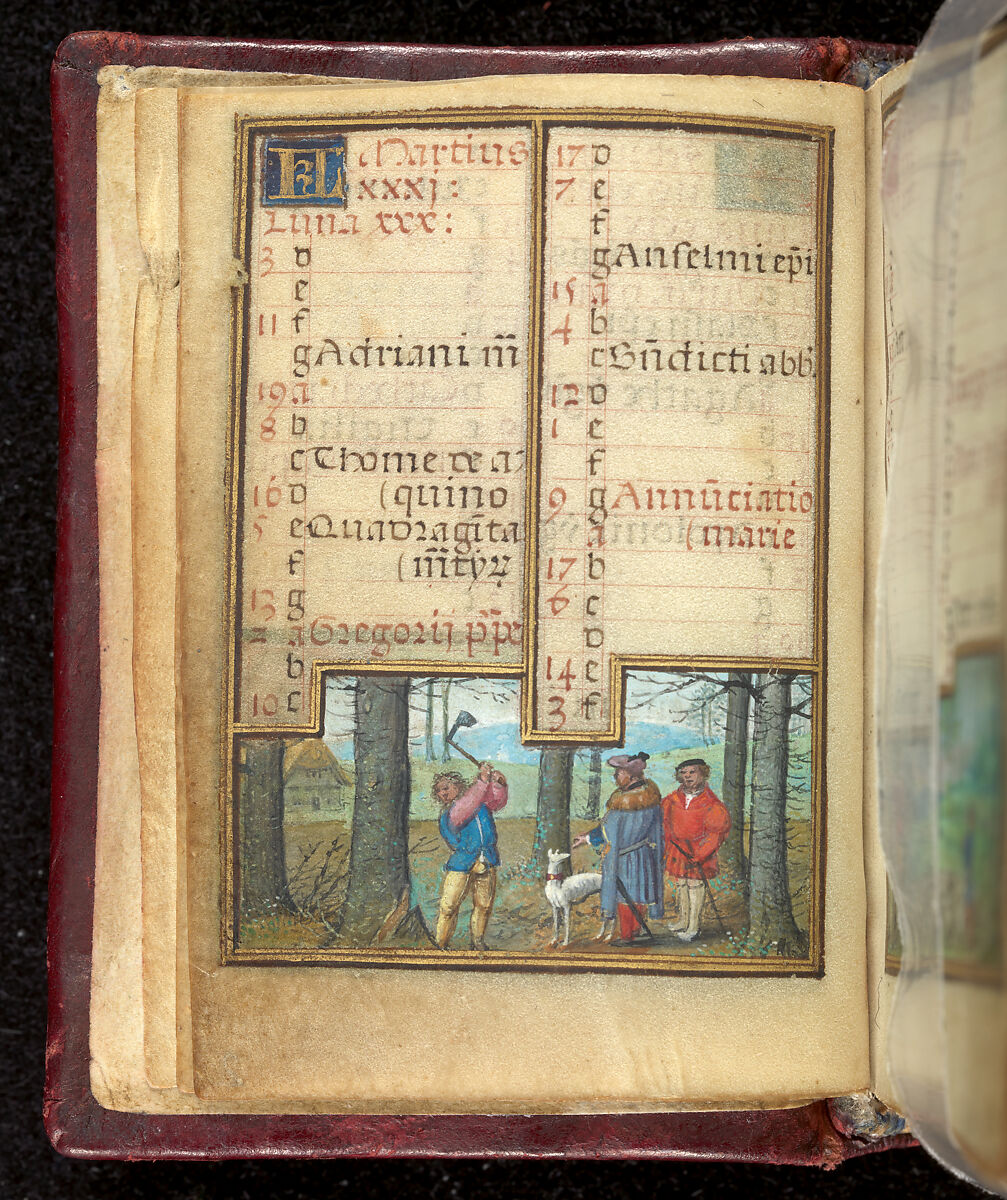 KL Martius
xxxj:
Luna xxx:
3 d
e
11 f
g Adriani m̄
19 a
8 b
c Thome de a
16 d (quino
5 e Quadragīta
f (m̄tyꝝ
13 g
2 a Gregorij p̄p̄e
b
10 c
17 d
7 e
f
g Anselmi ep̄i
15 a
4 b
c Bn̄dicti abb.
12 d
1 e
f
9 g Annūciatio
a (marie
17 b
6 c
d
14 e
3 f